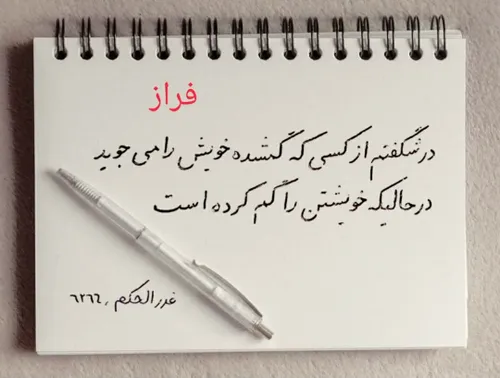 فراز
در شگفتم از کسی که گمشده خویش را می جوید
در حالیکه خویشتن را گم کرده است
غررالحکم، ۶۲۶۶